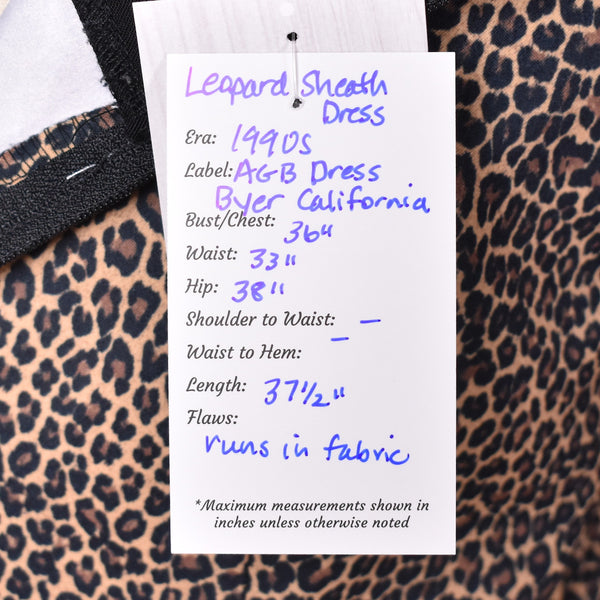 Leopard Sheath
Dress
Era: 1990s
Label: AGB Dress
Byer California
Bust/Chest: 36"
Waist: 33"
Hip: 38"
Shoulder to Waist: –
Waist to Hem: –
Length: 37½"
Flaws:
runs in fabric
*Maximum measurements shown in
inches unless otherwise noted